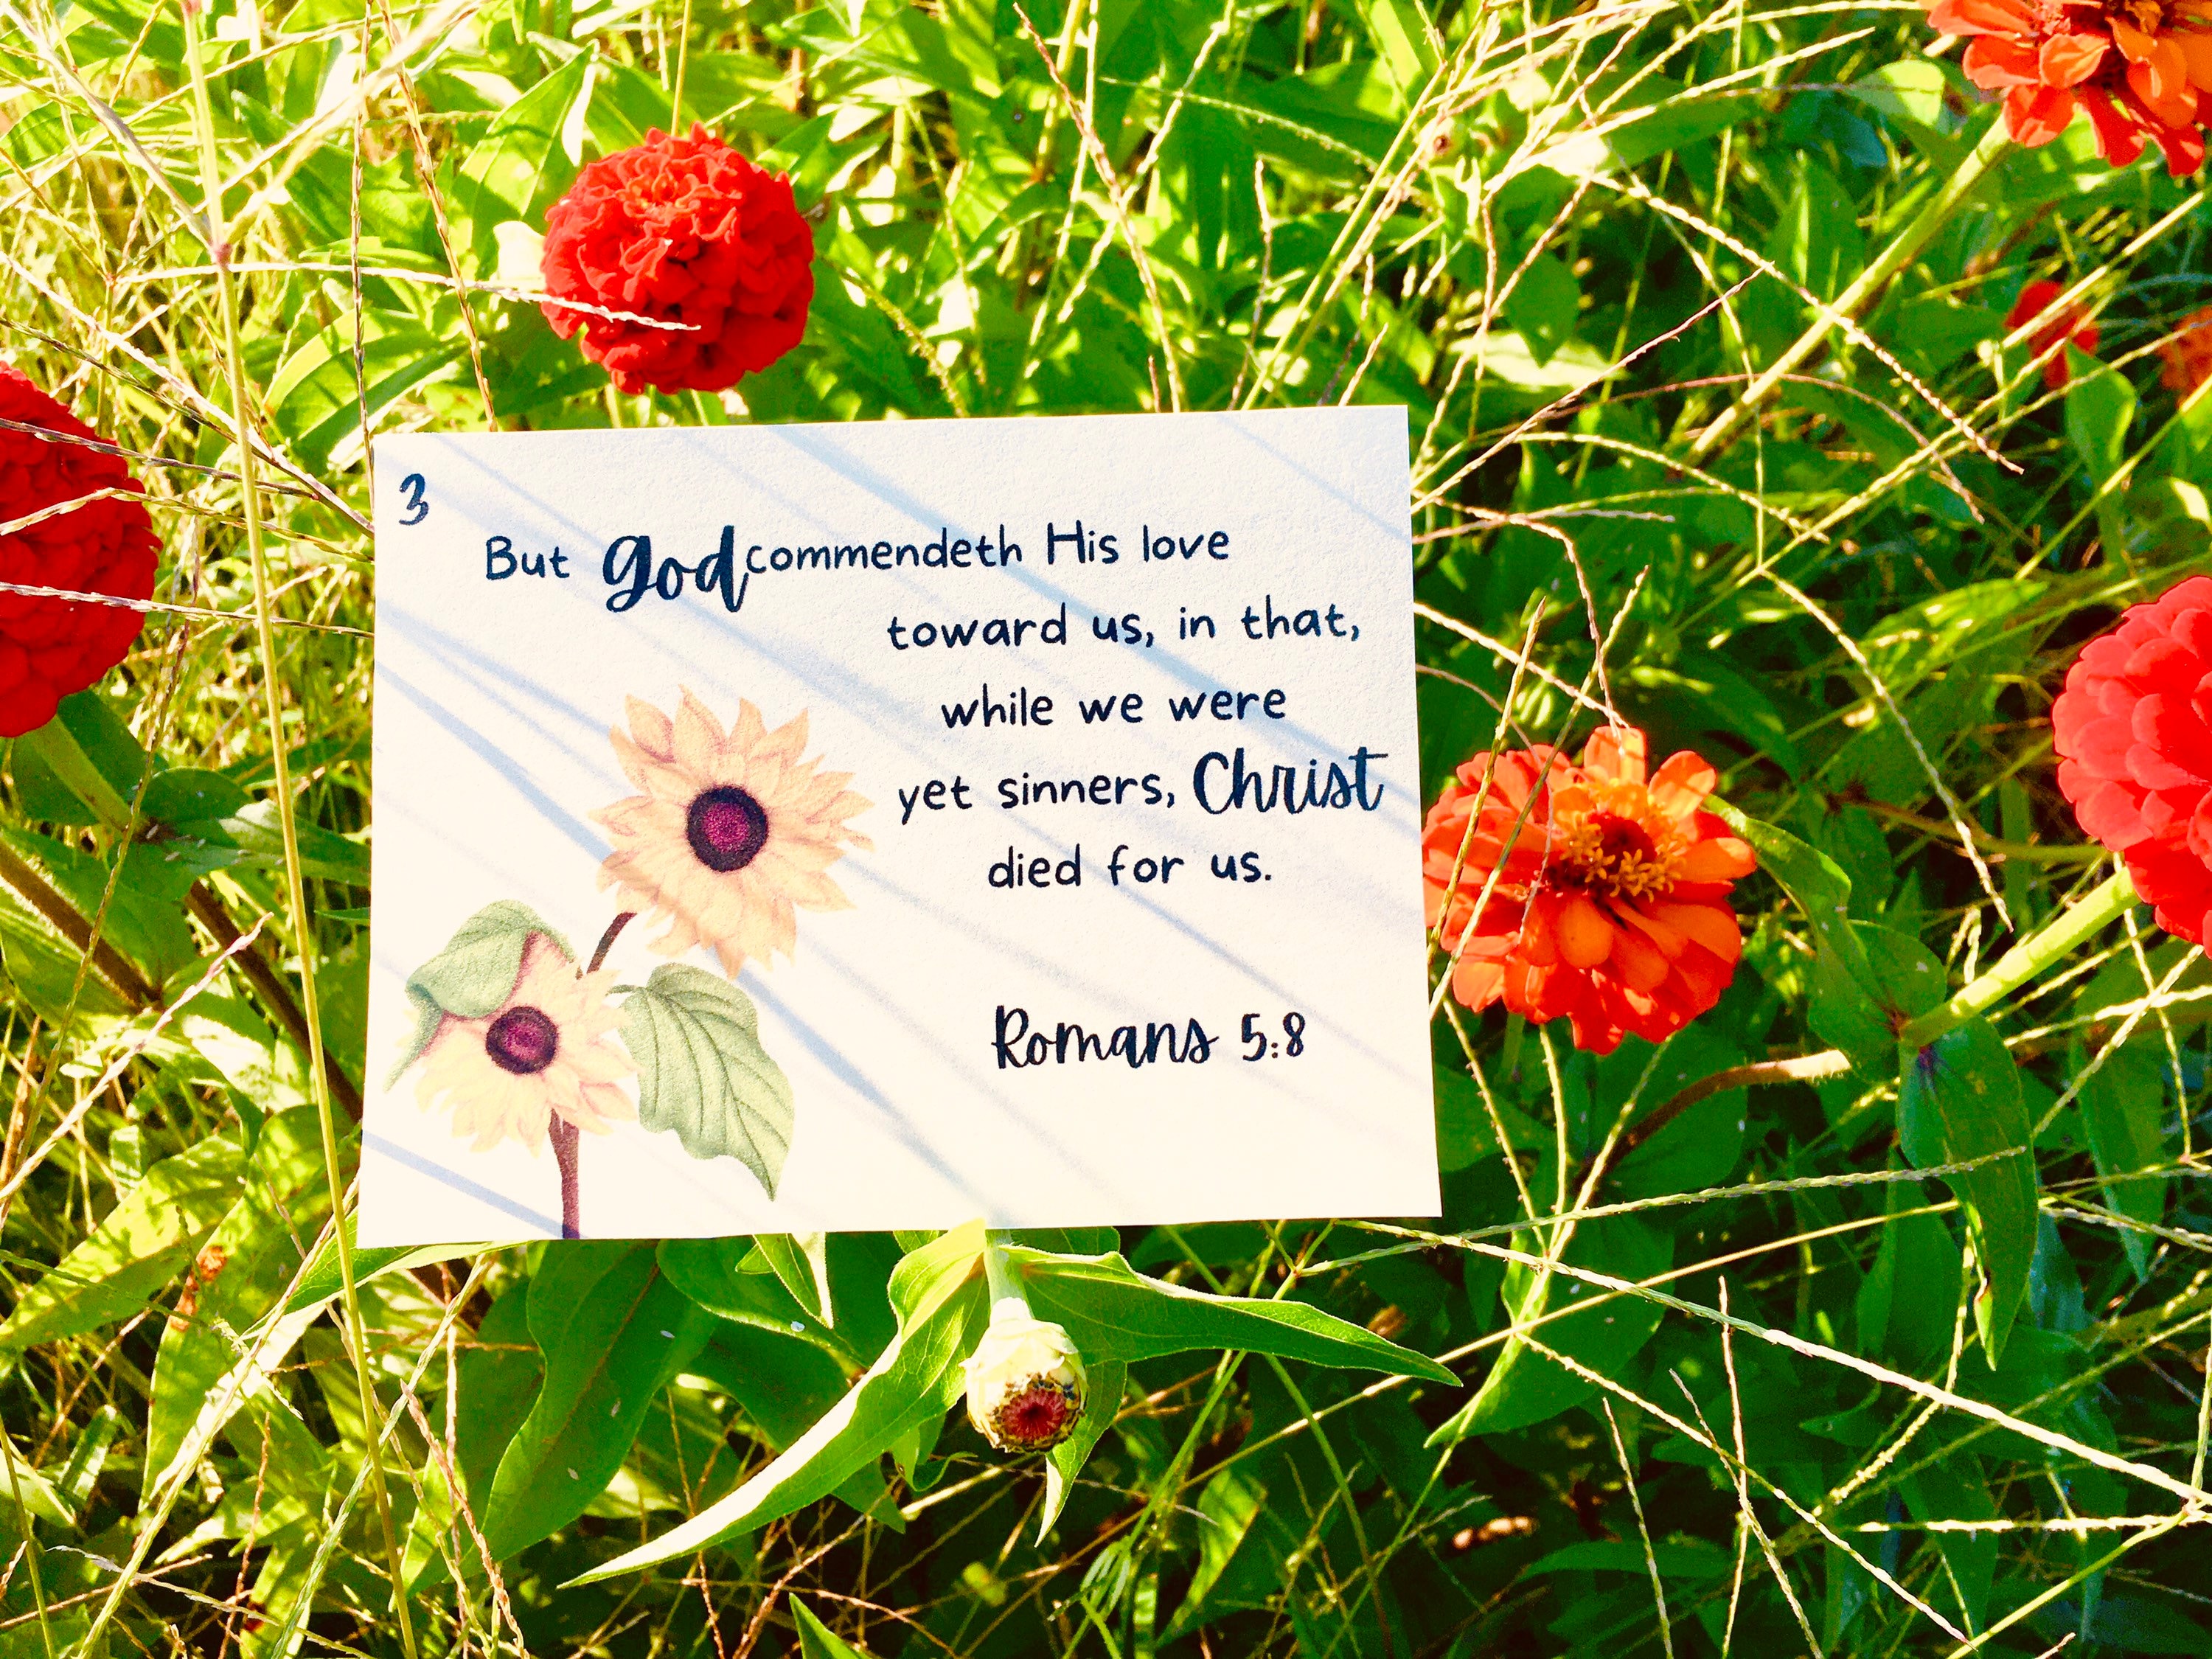 3
But god commendeth His love
toward us, in that,
while we were
yet sinners, Christ
died for us.
Romans 5:8